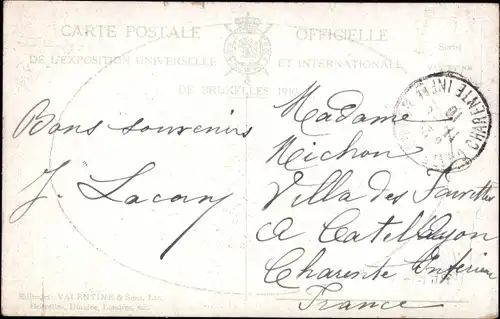 CARTE POSTALE OFFICIELLE
DE L'EXPOSITION UNIVERSELLE ET INTERNATIONALE
DE BRUXELLES 1910
CHARENTE INFRE
Bons souvenirs
J. Lacon
Madame
Michon
Villa des Fauvettes
A Catellayon
Charente Inférieure
France
VALENTINE & Sons, Ltd.
Bruxelles, Dundee, Londres, etc.